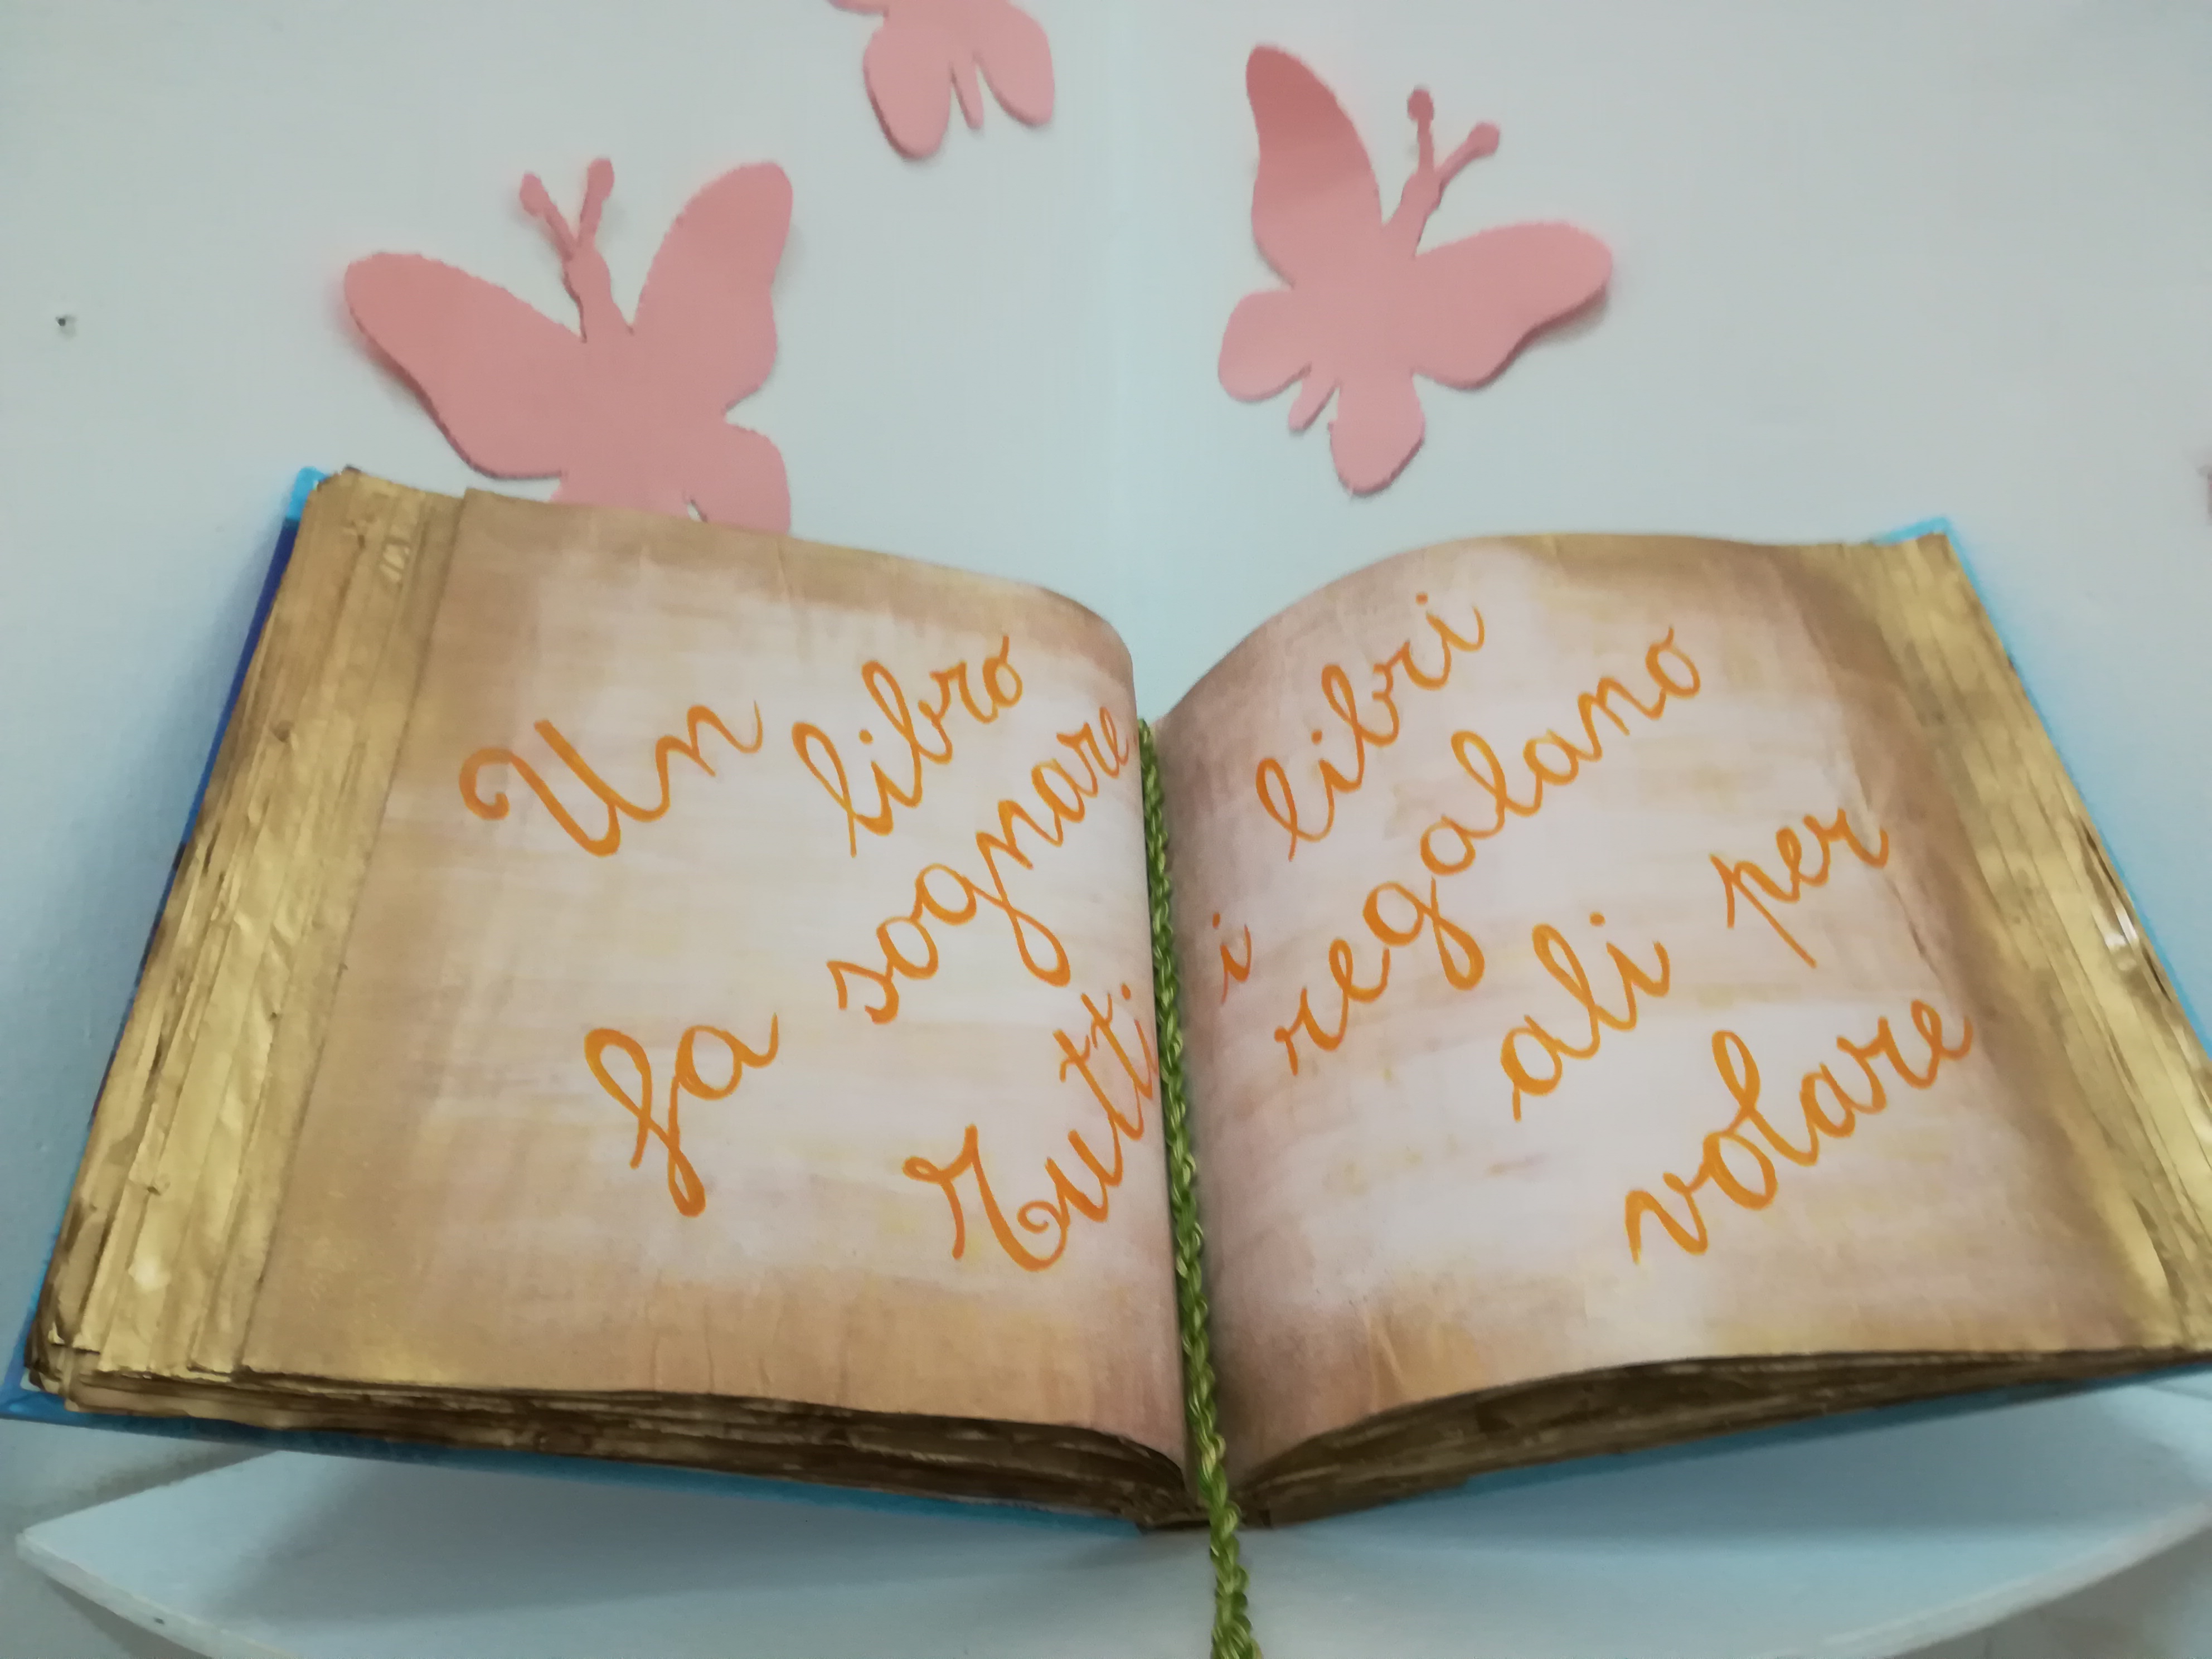 Un libro
fa sognare
Tutti
i libri
regalano
ali per
volare